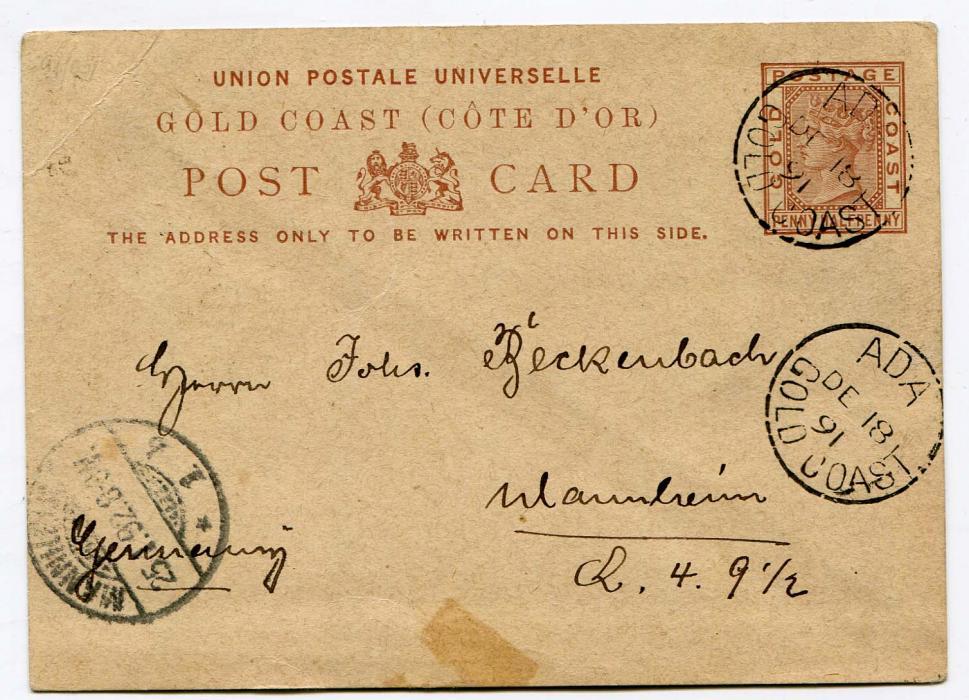 UNION POSTALE UNIVERSELLE
GOLD COAST (CÔTE D'OR)
POST CARD
THE ADDRESS ONLY TO BE WRITTEN ON THIS SIDE.
POSTAGE
GOLD COAST
PENNY HALFPENNY
ADA
DE 18
91
GOLD COAST
Herrn Johs. Reckenbach
ADA
DE 18
91
GOLD COAST
Mannheim
Germany
25.1.92.
MANNHEIM
1